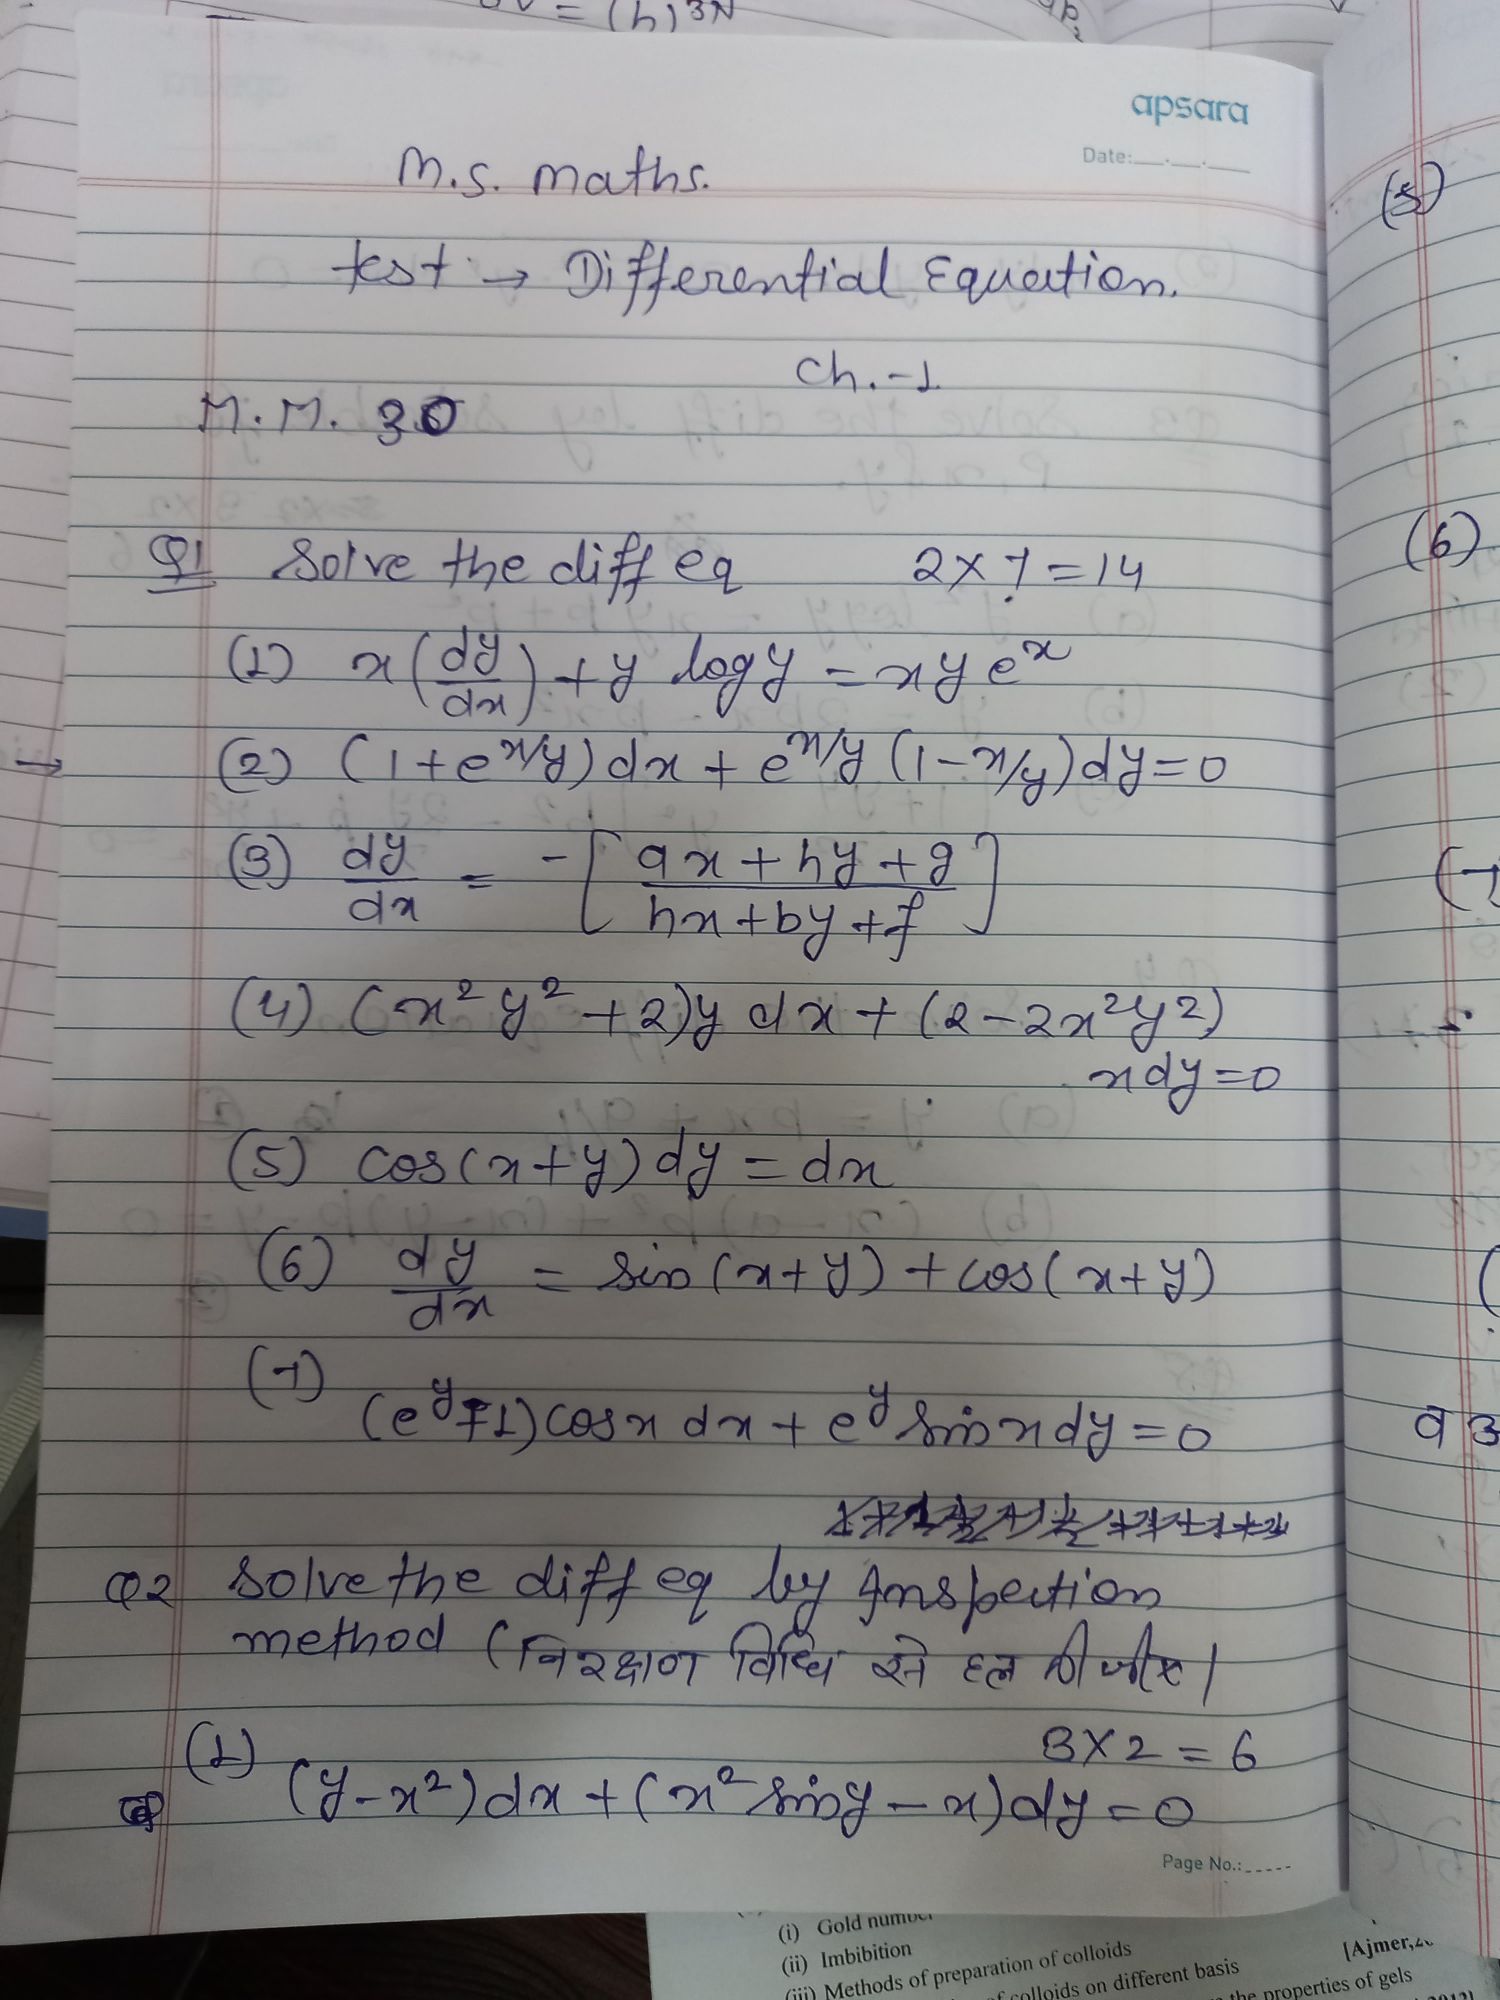 = (h)3N
apsara
Date:
M.S. Maths.
test → Differential Equation.
Ch.-1.
M.M. 30
Q1 Solve the diff eq 2×7=14
(1) x(dy/dx) + y log y = xy e^x
(2) (1+e^x/y)dx + e^x/y (1-x/y)dy=0
(3) dy/dx = -[ax+hy+g / hx+by+f]
(4) (x²y²+2)y dx + (2-2x²y²)
x dy=0
(5) cos(x+y)dy = dx
(6) dy/dx = sin(x+y) + cos(x+y)
(7)
(e^y+1)cosx dx + e^y sinx dy = 0
Q2 Solve the diff eq by Inspection
method (निरक्षण विधि से हल कीजीए।
(1) 3×2=6
(y-x²)dx + (x² siny - x)dy = 0
Page No.:
(5)
(6)
(7
(i) Gold number
(ii) Imbibition
[Ajmer,
(iii) Methods of preparation of colloids
of colloids on different basis
the properties of gels